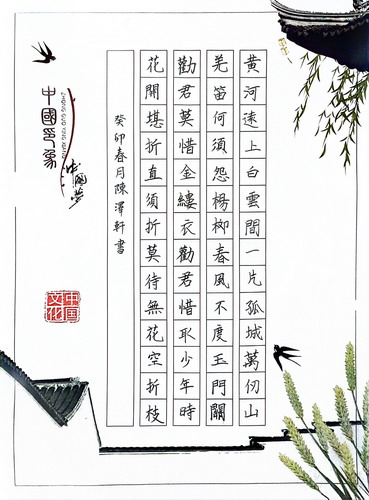 黄河遠上白雲間一片孤城萬仞山
羌笛何須怨楊柳春風不度玉門關
勸君莫惜金縷衣勸君惜取少年時
花開堪折直須折莫待無花空折枝
癸卯春月陳澤軒書
中國印象
中國夢
中国文化